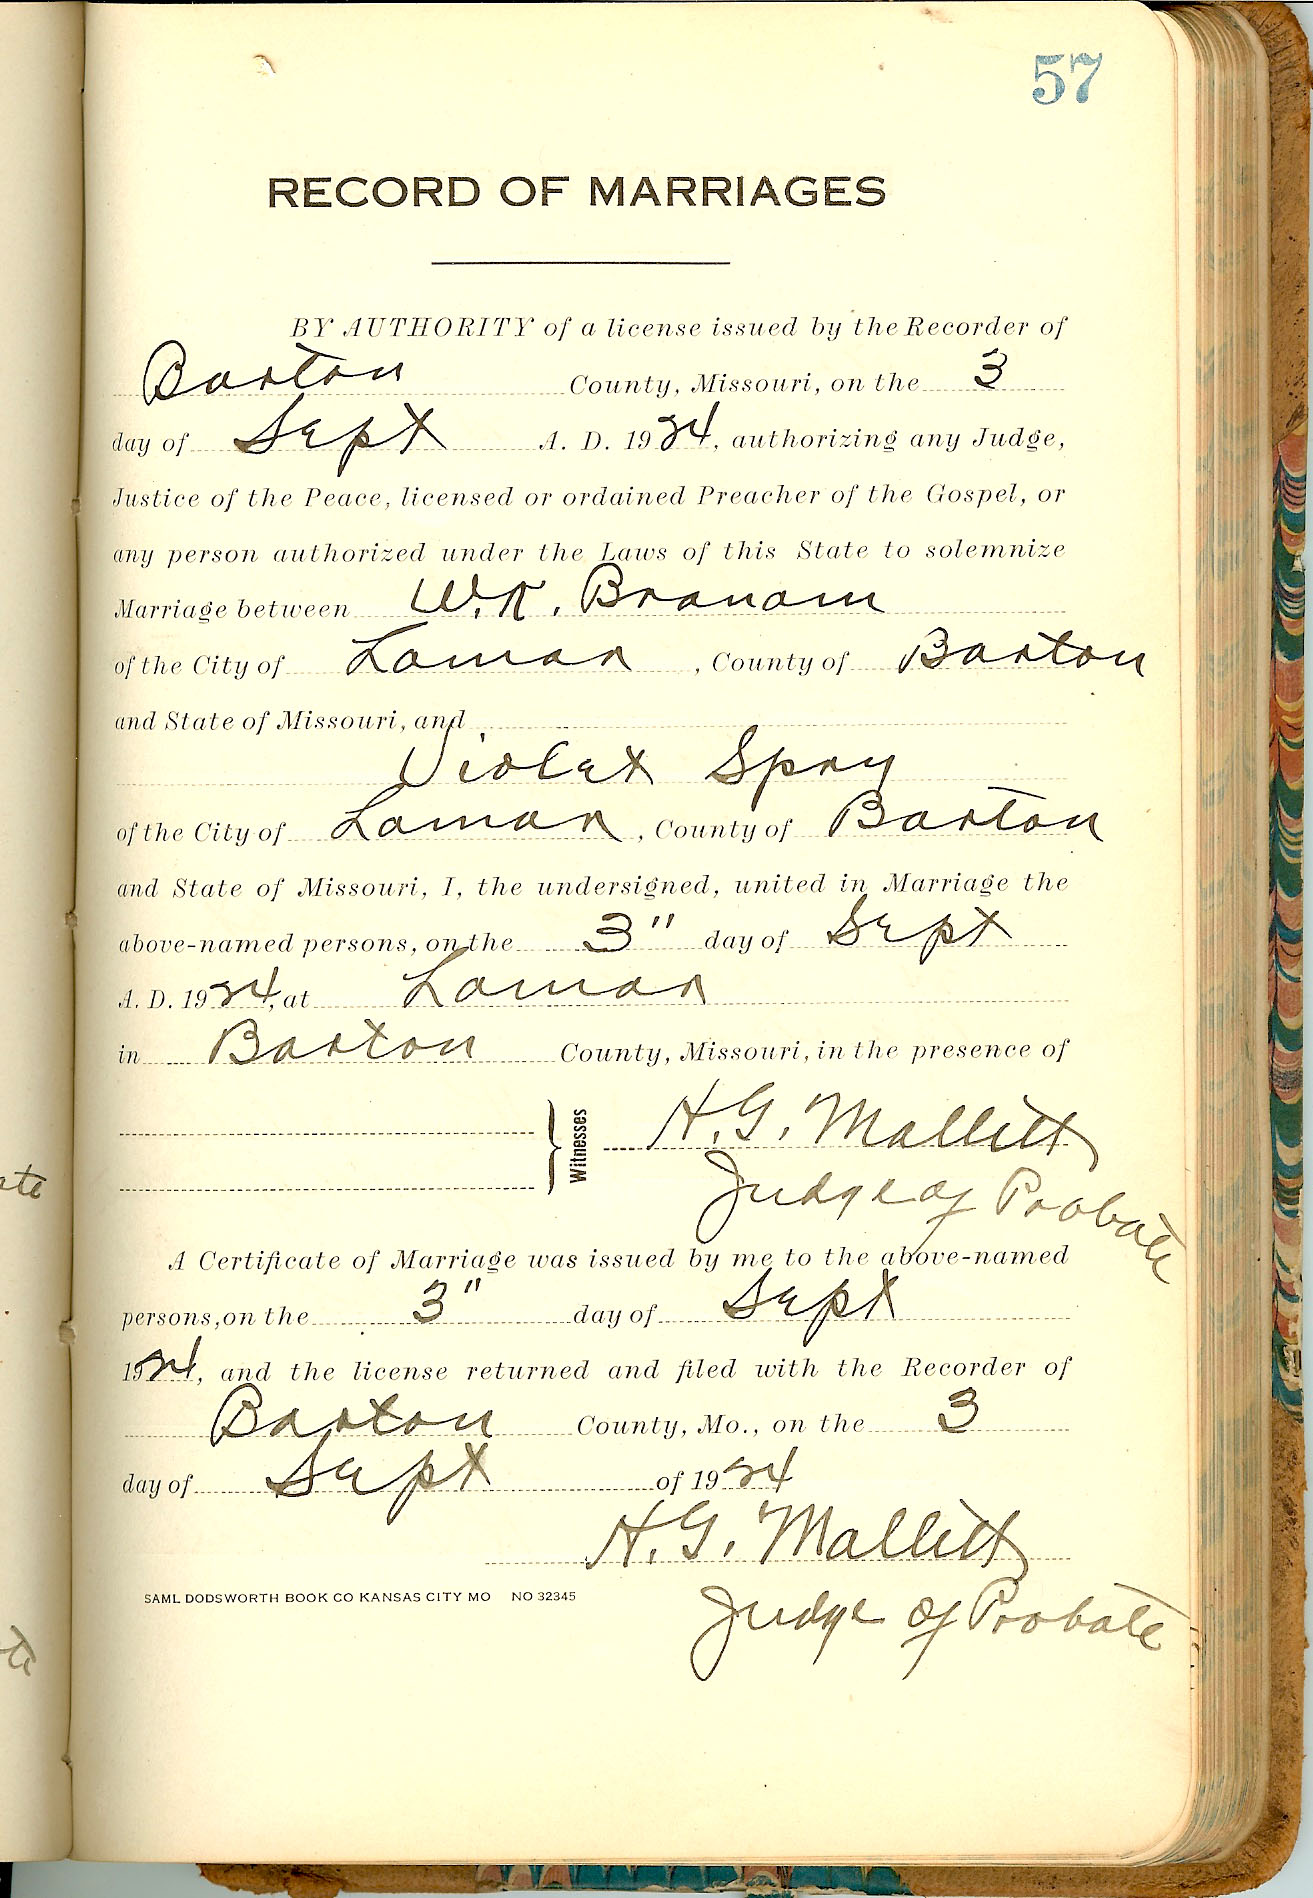 57
RECORD OF MARRIAGES
BY AUTHORITY of a license issued by the Recorder of
Barton County, Missouri, on the 3
day of Sept A. D. 1924, authorizing any Judge,
Justice of the Peace, licensed or ordained Preacher of the Gospel, or
any person authorized under the Laws of this State to solemnize
Marriage between W.R. Branam
of the City of Lamar, County of Barton
and State of Missouri, and
Violet Spry
of the City of Lamar, County of Barton
and State of Missouri, I, the undersigned, united in Marriage the
above-named persons, on the 3" day of Sept
A. D. 1924, at Lamar
in Barton County, Missouri, in the presence of
Witnesses H.G. Mallitt
Judge of Probate
A Certificate of Marriage was issued by me to the above-named
persons, on the 3" day of Sept
1924, and the license returned and filed with the Recorder of
Barton County, Mo., on the 3
day of Sept of 1924
H.G. Mallitt
SAML DODSWORTH BOOK CO KANSAS CITY MO NO 32345
Judge of Probate